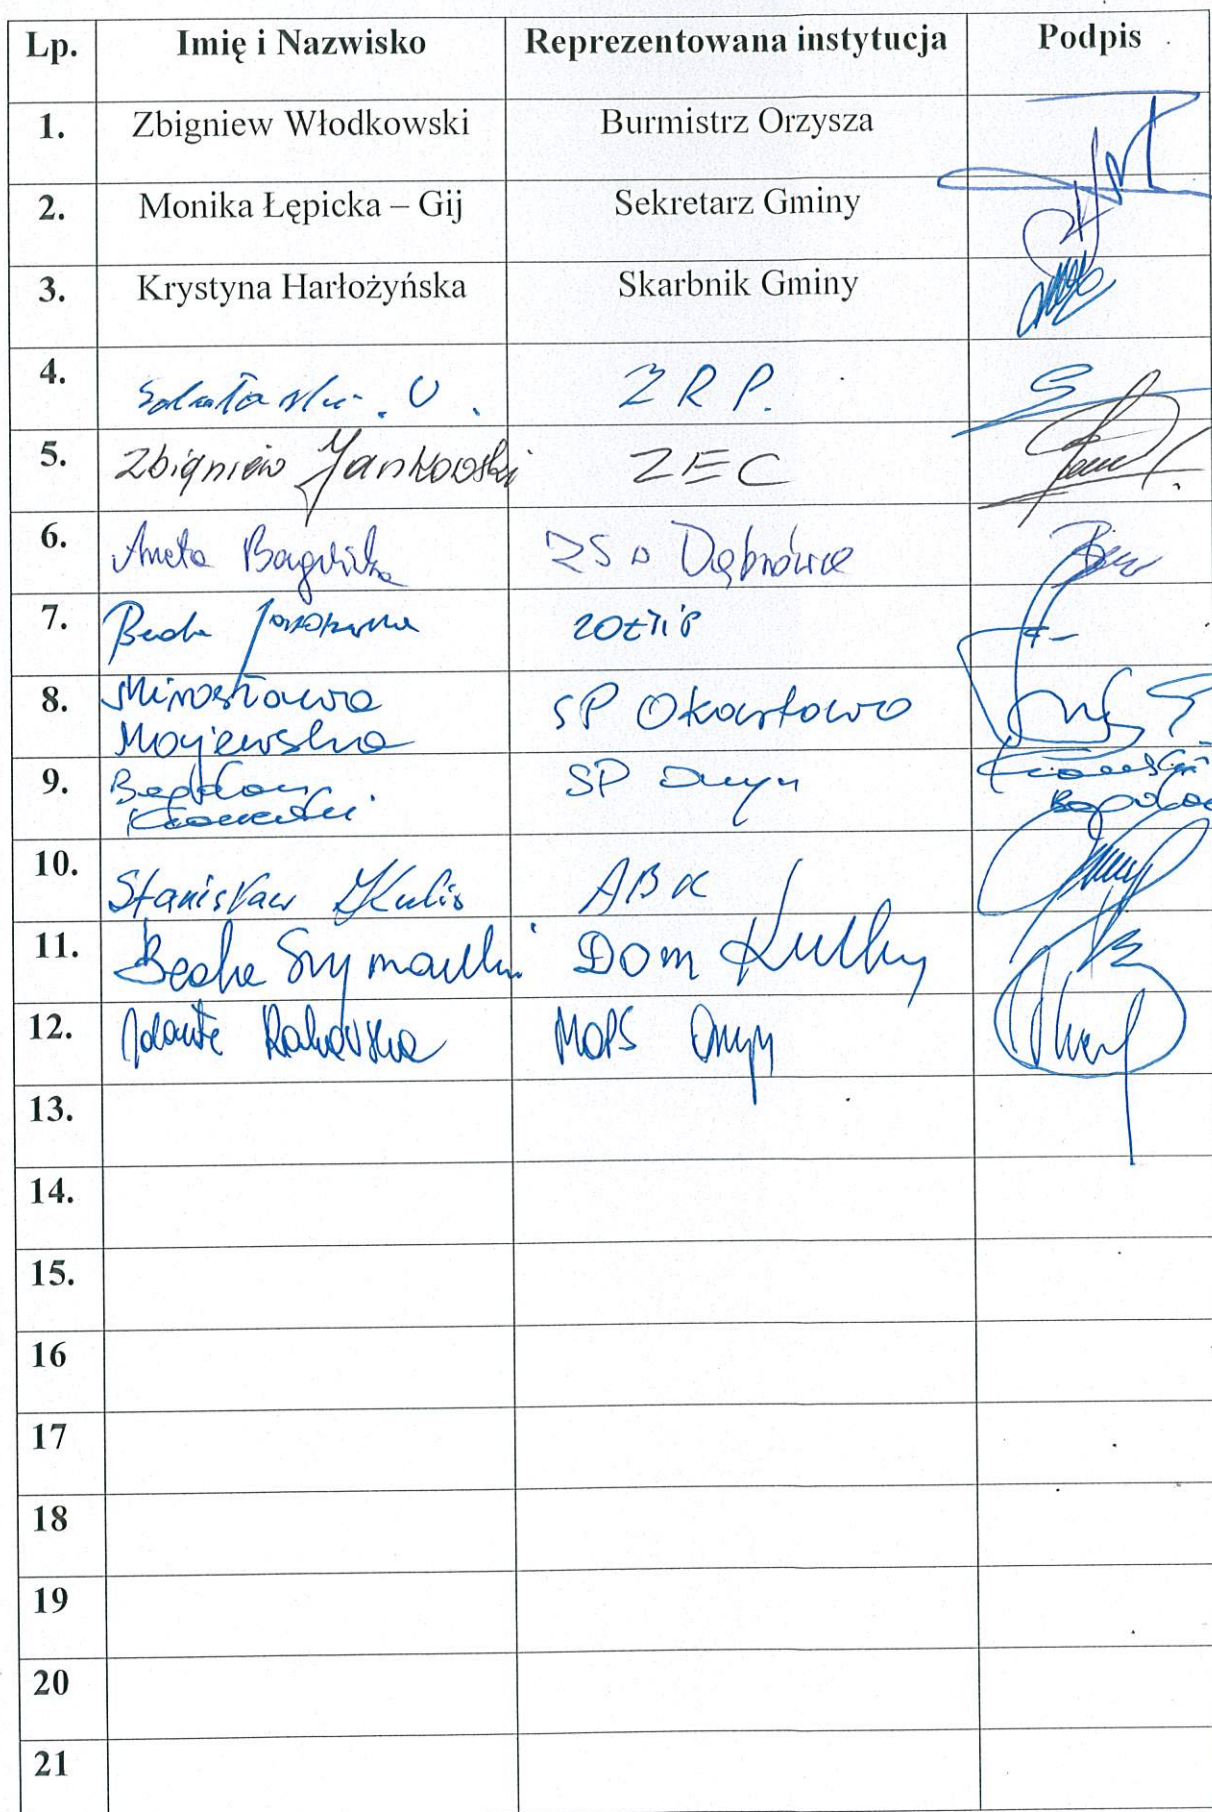 Lp. Imię i Nazwisko Reprezentowana instytucja Podpis
1. Zbigniew Włodkowski Burmistrz Orzysza
2. Monika Łępicka – Gij Sekretarz Gminy
3. Krystyna Harłożyńska Skarbnik Gminy
4. Z R P.
5. Zbigniew Jankowski ZEC
6. Aneta ZS w Dąbrówce
7. Beata
8. Mirosława SP Okartowo
Majewska
9. Bogdan SP Orzysz
10. Stanisław Kulis ABK
11. Beata Szymańska Dom Kultury
12. Jolanta Rakowska MOPS Orzysz
13.
14.
15.
16
17
18
19
20
21